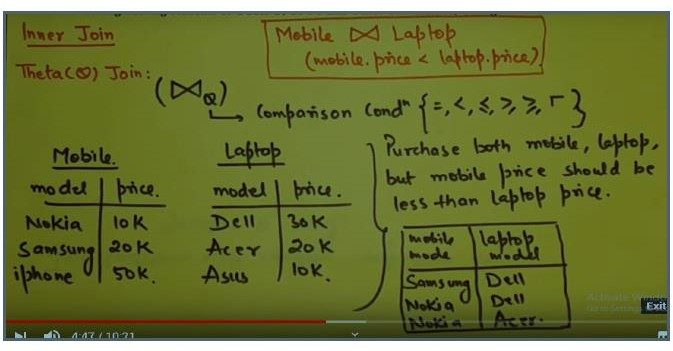 Inner Join
Mobile ⋈ Laptop
(mobile.price < laptop.price)
Theta(Θ) Join:
(⋈Θ)
Comparison Condⁿ {=, <, ≤, >, ≥, Γ}
Mobile.
model | price.
Nokia | 10K
Samsung | 20K
iphone | 50K.
Laptop
model | price.
Dell | 30K
Acer | 20K
Asus | 10K.
Purchase both mobile, laptop,
but mobile price should be
less than laptop price.
mobile | laptop
mode | model
Samsung | Dell
Nokia | Dell
Nokia | Acer.
Activate Windows
Exit
4:47 / 10:31